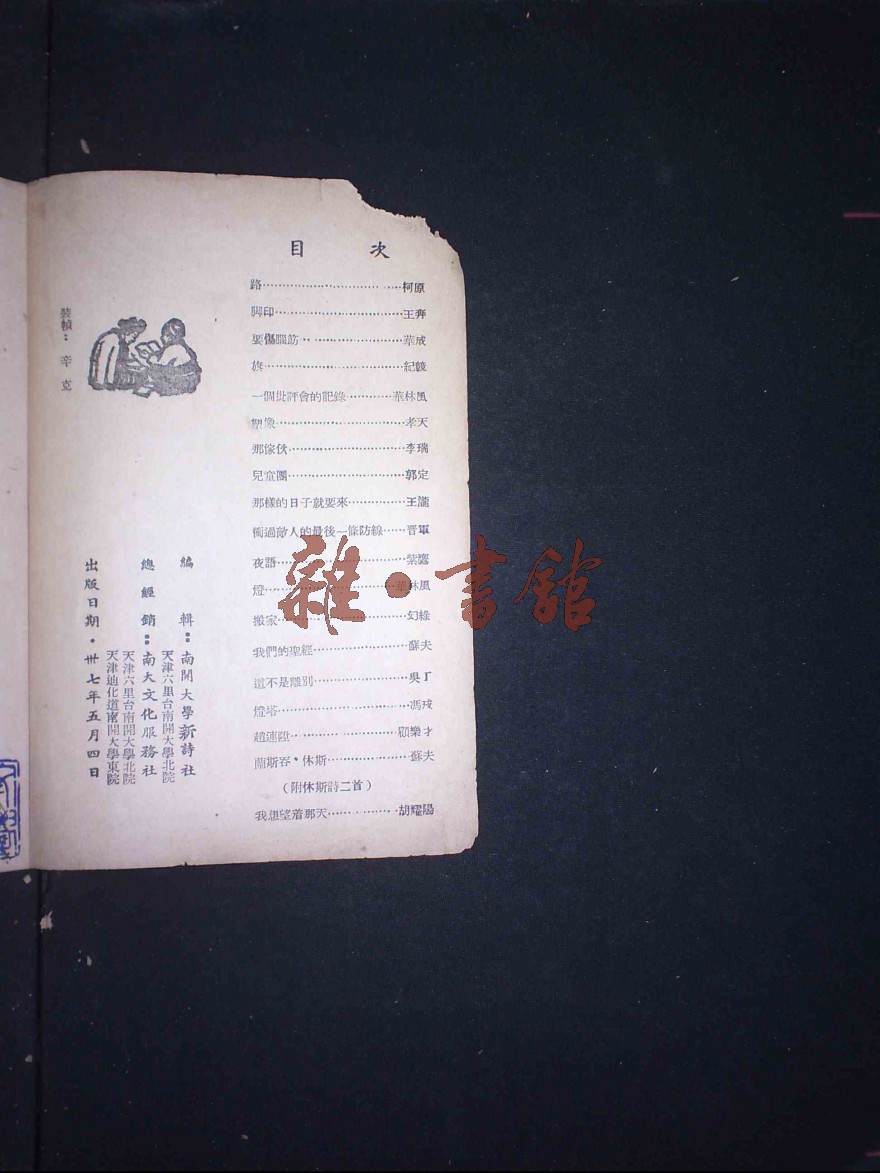 目 次
路……………………柯原
脚印……………………王奔
要傷腦筋……………………華成
旗……………………紀
一個批評會的記錄…………華林風
塑像……………………孝天
那傢伙……………………李瑞
兒童團……………………郭定
那樣的日子就要來……………王
衝過敵人的最後一條防線……晋軍
夜語……………………紫
燈……………………華林風
搬家……………………幻綠
我們的聖經……………………蘇夫
這不是離別……………………吳丁
燈塔……………………馮戎
趙連陞……………………顧樂才
蘭斯吞·休斯……………………蘇夫
(附休斯詩二首)
我想望着那天……………胡耀陽
裝幀：辛克
編輯：南開大學新詩社
天津六里台南開大學北院
總經銷：南大文化服務社
天津六里台南開大學北院
天津迪化道南開大學東院
出版日期·卅七年五月四日
雜·書館